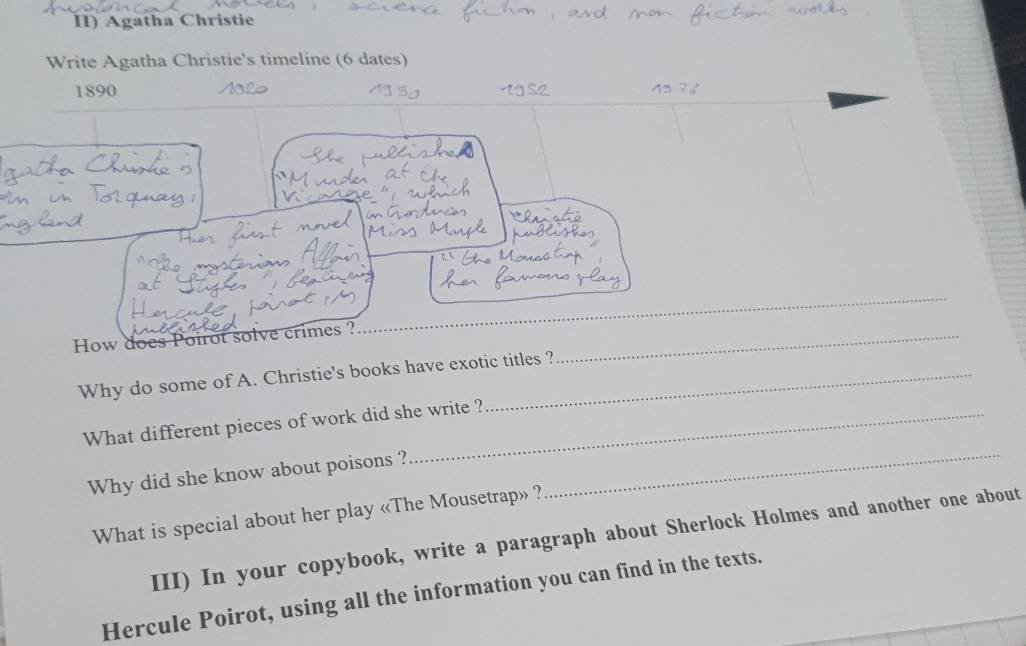 historical novels, science fiction, and non fiction works.
II) Agatha Christie
Write Agatha Christie's timeline (6 dates)
1890 1920 1930 1952 1976
gatha Christie is
in Torquay,
England
She published
"Murder at the
vicarage", which
introduces
Miss Marple
Her first novel
"The mysterious Affair
at Styles", featuring
Hercule Poirot, is
published
Christie
publishes
"the Mousetrap",
her famous play
How does Poirot solve crimes ?
Why do some of A. Christie's books have exotic titles ?
What different pieces of work did she write ?
Why did she know about poisons ?
What is special about her play «The Mousetrap» ?
III) In your copybook, write a paragraph about Sherlock Holmes and another one about
Hercule Poirot, using all the information you can find in the texts.